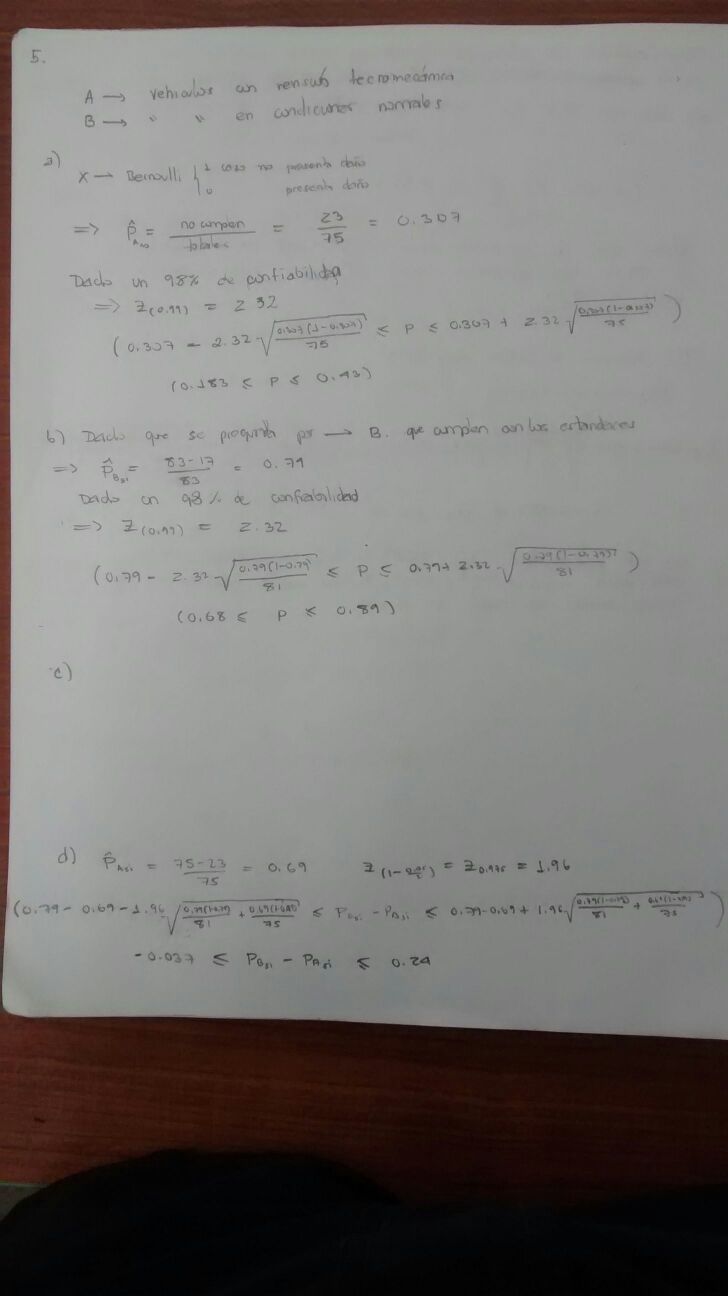 5.
A → vehiculos con revisión tecnomecánica
B → " " en condiciones normales
a)
X → Bernoulli { 1 caso no presenta daño
0 presenta daño
=> p̂_{A_{no}} = no cumplen / totales = 23/75 = 0.307
Dado un 98% de confiabilidad
=> Z(0.99) = 2.32
(0.307 - 2.32 √(0.307(1-0.307)/75) ≤ P ≤ 0.307 + 2.32 √(0.307(1-0.307)/75))
(0.183 ≤ P ≤ 0.43)
b) Dado que se pregunta por → B. que cumplen con los estandares
=> p̂_{B_{si}} = 83-17/83 = 0.79
Dado un 98% de confiabilidad
=> Z(0.99) = 2.32
(0.79 - 2.32 √(0.79(1-0.79)/81) ≤ P ≤ 0.79 + 2.32 √(0.79(1-0.79)/81))
(0.68 ≤ P ≤ 0.89)
c)
d) p̂_{A_{si}} = 75-23/75 = 0.69 Z(1-0.05/2) = Z_{0.975} = 1.96
(0.79 - 0.69 - 1.96 √(0.79(1-0.79)/81 + 0.69(1-0.69)/75) ≤ P_{B_{si}} - P_{A_{si}} ≤ 0.79 - 0.69 + 1.96 √(0.79(1-0.79)/81 + 0.69(1-0.69)/75))
-0.037 ≤ P_{B_{si}} - P_{A_{si}} ≤ 0.24